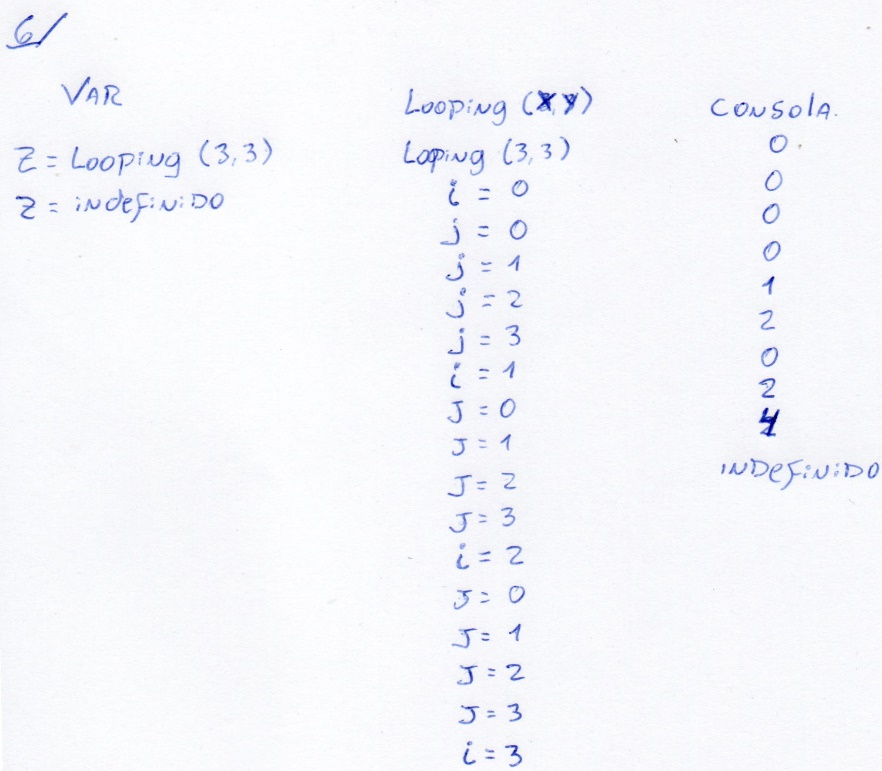 6/
VAR
Z = Looping (3,3)
Z = indefinido
Looping (X,Y)
Loping (3,3)
i = 0
j = 0
j = 1
j = 2
j = 3
i = 1
J = 0
J = 1
J = 2
J = 3
i = 2
J = 0
J = 1
J = 2
J = 3
i = 3
CONSOLA.
0.
0
0
0
1
2
0
2
4
INDEFINIDO